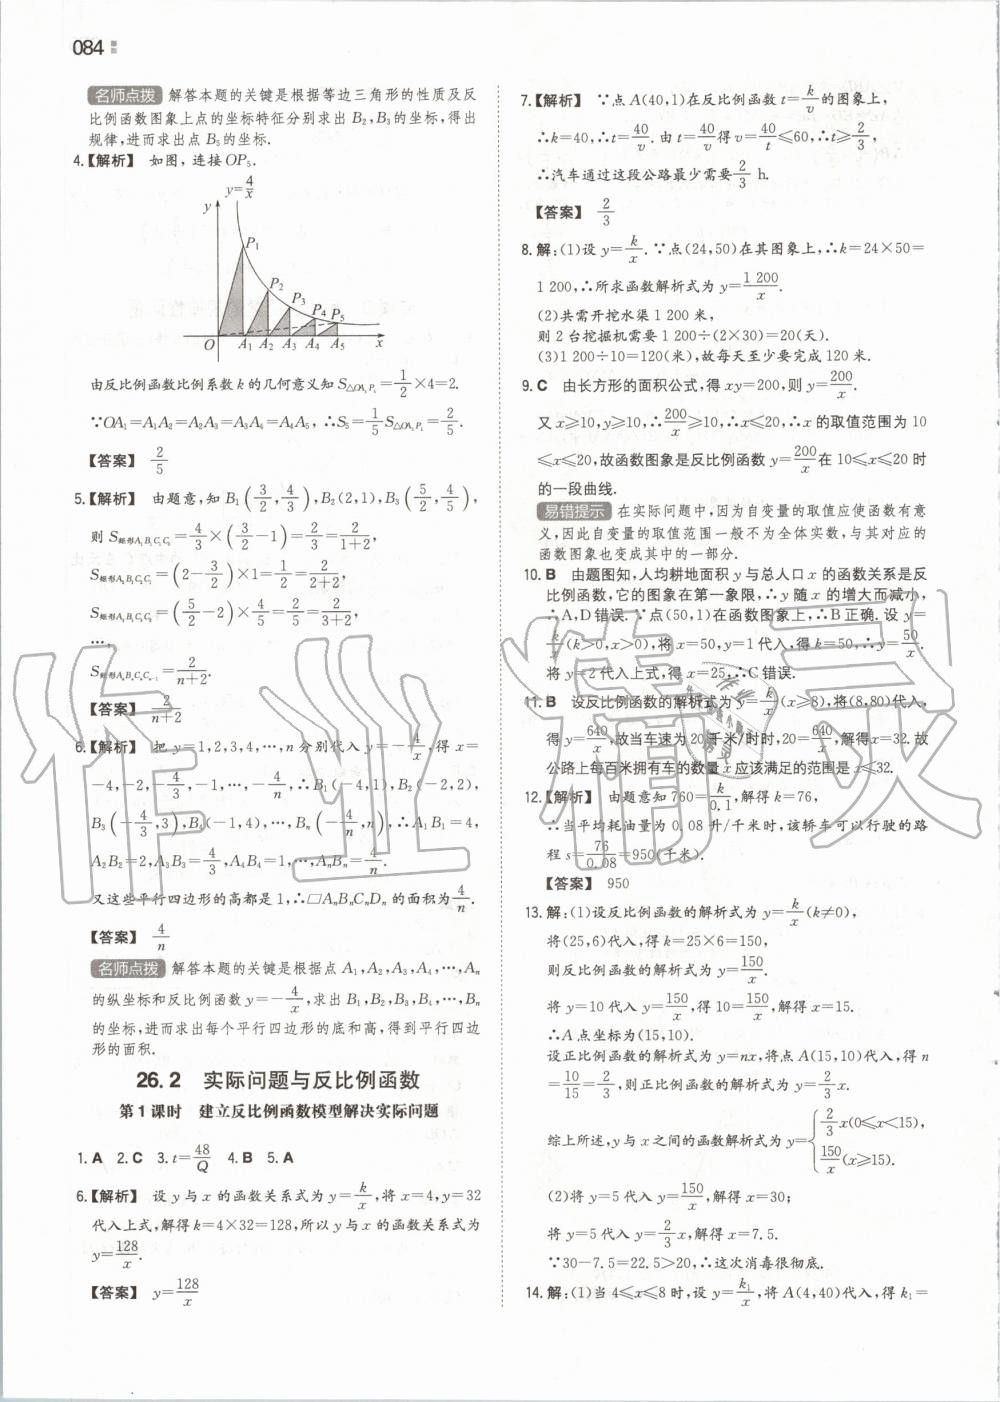 084
名师点拨 解答本题的关键是根据等边三角形的性质及反
比例函数图象上点的坐标特征分别求出 B₂,B₃的坐标,得出
规律,进而求出点 B₅的坐标.
4.【解析】 如图,连接OP₅.
y=4/x
y
P₁
P₂
P₃
P₄ P₅
O A₁ A₂ A₃ A₄ A₅ x
由反比例函数比例系数 k 的几何意义知 S△OA₅P₅=1/2×4=2.
∵OA₁=A₁A₂=A₂A₃=A₃A₄=A₄A₅,∴S₅=1/5S△OA₅P₅=2/5.
【答案】 2/5
5.【解析】 由题意,知 B₁(3/2,4/3),B₂(2,1),B₃(5/2,4/5),
则 S矩形A₁B₁C₁C₀=4/3×(3/2-1)=2/3=2/(1+2),
S矩形A₂B₂C₂C₁=(2-3/2)×1=1/2=2/(2+2),
S矩形A₃B₃C₃C₂=(5/2-2)×4/5=2/5=2/(3+2),
…,
S矩形AₙBₙCₙCₙ₋₁=2/(n+2).
【答案】 2/(n+2)
6.【解析】 把 y=1,2,3,4,…,n 分别代入 y=-4/x,得 x=
-4,-2,-4/3,-1,…,-4/n,∴B₁(-4,1),B₂(-2,2),
B₃(-4/3,3),B₄(-1,4),…,Bₙ(-4/n,n),∴A₁B₁=4,
A₂B₂=2,A₃B₃=4/3,A₄B₄=1,…,AₙBₙ=4/n.
又这些平行四边形的高都是 1,∴□AₙBₙCₙDₙ 的面积为4/n.
【答案】 4/n
名师点拨 解答本题的关键是根据点 A₁,A₂,A₃,A₄,…,Aₙ
的纵坐标和反比例函数 y=-4/x,求出 B₁,B₂,B₃,B₄,…,Bₙ
的坐标,进而求出每个平行四边形的底和高,得到平行四边
形的面积.
26.2 实际问题与反比例函数
第1课时 建立反比例函数模型解决实际问题
1.A 2.C 3.t=48/Q 4.B 5.A
6.【解析】 设 y 与 x 的函数关系式为 y=k/x,将 x=4,y=32
代入上式,解得 k=4×32=128,所以 y 与 x 的函数关系式为
y=128/x.
【答案】 y=128/x
7.【解析】 ∵点 A(40,1)在反比例函数 t=k/v的图象上,
∴k=40,∴t=40/v.由 t=40/v得 v=40/t≤60,∴t≥2/3,
∴汽车通过这段公路最少需要2/3 h.
【答案】 2/3
8.解:(1)设 y=k/x.∵点(24,50)在其图象上,∴k=24×50=
1 200,∴所求函数解析式为 y=1 200/x.
(2)共需开挖水渠 1 200 米,
则 2 台挖掘机需要 1 200÷(2×30)=20(天).
(3)1 200÷10=120(米),故每天至少要完成 120 米.
9.C 由长方形的面积公式,得 xy=200,则 y=200/x.
又 x≥10,y≥10,∴200/x≥10,∴x≤20,∴x 的取值范围为 10
≤x≤20,故函数图象是反比例函数 y=200/x在 10≤x≤20 时
的一段曲线.
易错提示 在实际问题中,因为自变量的取值应使函数有意
义,因此自变量的取值范围一般不为全体实数,与其对应的
函数图象也变成其中的一部分.
10.B 由题图知,人均耕地面积 y 与总人口 x 的函数关系是反
比例函数,它的图象在第一象限,∴y 随 x 的增大而减小,
∴A,D错误.∵点(50,1)在函数图象上,∴B正确.设 y=
k/x(k>0,x>0),将 x=50,y=1代入,得 k=50,∴y=50/x.
将 y=2代入上式,得 x=25,∴C错误.
11.B 设反比例函数的解析式为 y=k/x(x≥8),将(8,80)代入,
得 y=640/x,故当车速为 20 千米/时时,20=640/x,解得x=32.故
公路上每百米拥有车的数量 x 应该满足的范围是 x≤32.
12.【解析】 由题意知 760=k/0.1,解得 k=76,
∴当平均耗油量为 0.08 升/千米时,该轿车可以行驶的路
程 s=76/0.08=950(千米).
【答案】 950
13.解:(1)设反比例函数的解析式为 y=k/x(k≠0),
将(25,6)代入,得 k=25×6=150,
则反比例函数的解析式为 y=150/x.
将 y=10 代入 y=150/x,得 10=150/x,解得 x=15.
∴A 点坐标为(15,10).
设正比例函数的解析式为 y=nx,将点 A(15,10)代入,得 n
=10/15=2/3,则正比例函数的解析式为 y=2/3x.
综上所述,y 与 x 之间的函数解析式为 y={2/3x(0≤x<15),
150/x(x≥15).
(2)将 y=5 代入 y=150/x,解得 x=30;
将 y=5 代入 y=2/3x,得 x=7.5.
∵30-7.5=22.5>20,∴这次消毒很彻底.
14.解:(1)当 4≤x≤8 时,设 y=k₁/x,将 A(4,40)代入,得 k₁=
作业精灵